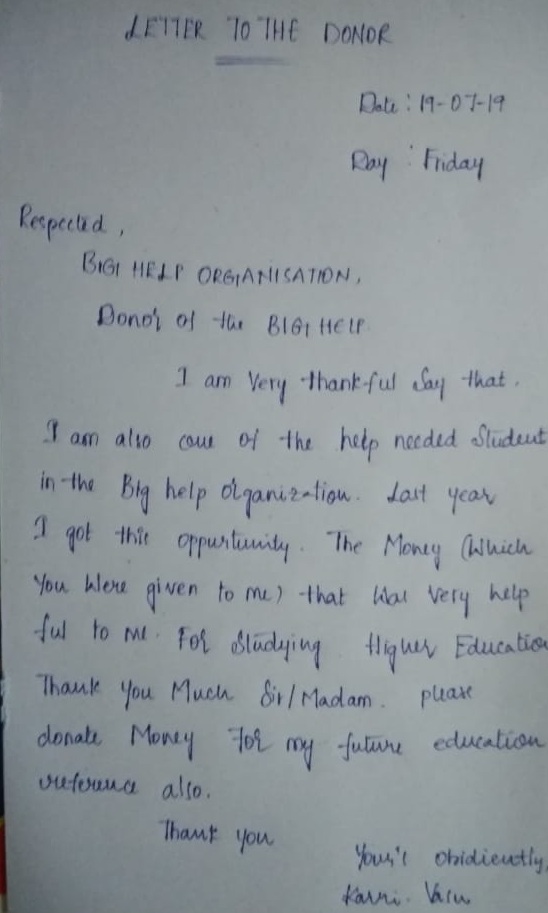 LETTER TO THE DONOR
Date : 19-07-19
Day : Friday
Respected,
BIG HELP ORGANISATION,
Donor of the BIG HELP
I am Very thankful Say that.
I am also one of the help needed Student
in the Big help organization. Last year
I got this oppurtunity. The Money (Which
You Were given to me) that Was Very help
ful to me. For Studying Higher Education
Thank You Much Sir/Madam. please
donate Money For my future education
reference also.
Thank you
Your's obidiently,
Karri. Vasu